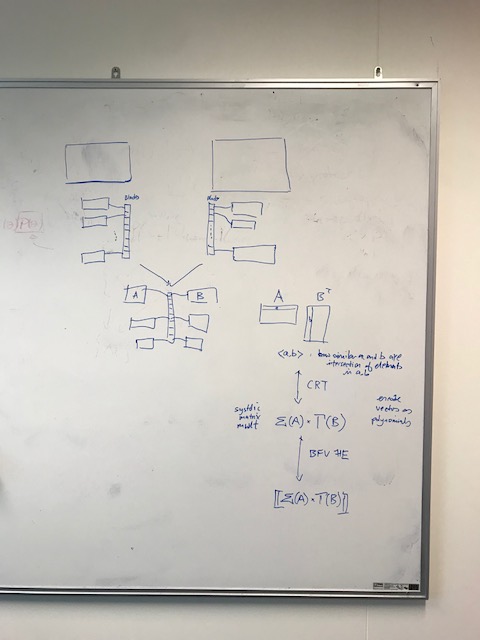 A B
A Bᵀ
<a,b> : how similar a and b are
intersection of elements
in a, b
CRT
systolic
matrix
mult
Σ(A) * T(B)
encode
vectors as
polynomials
BFV HE
[[Σ(A) * T(B)]]